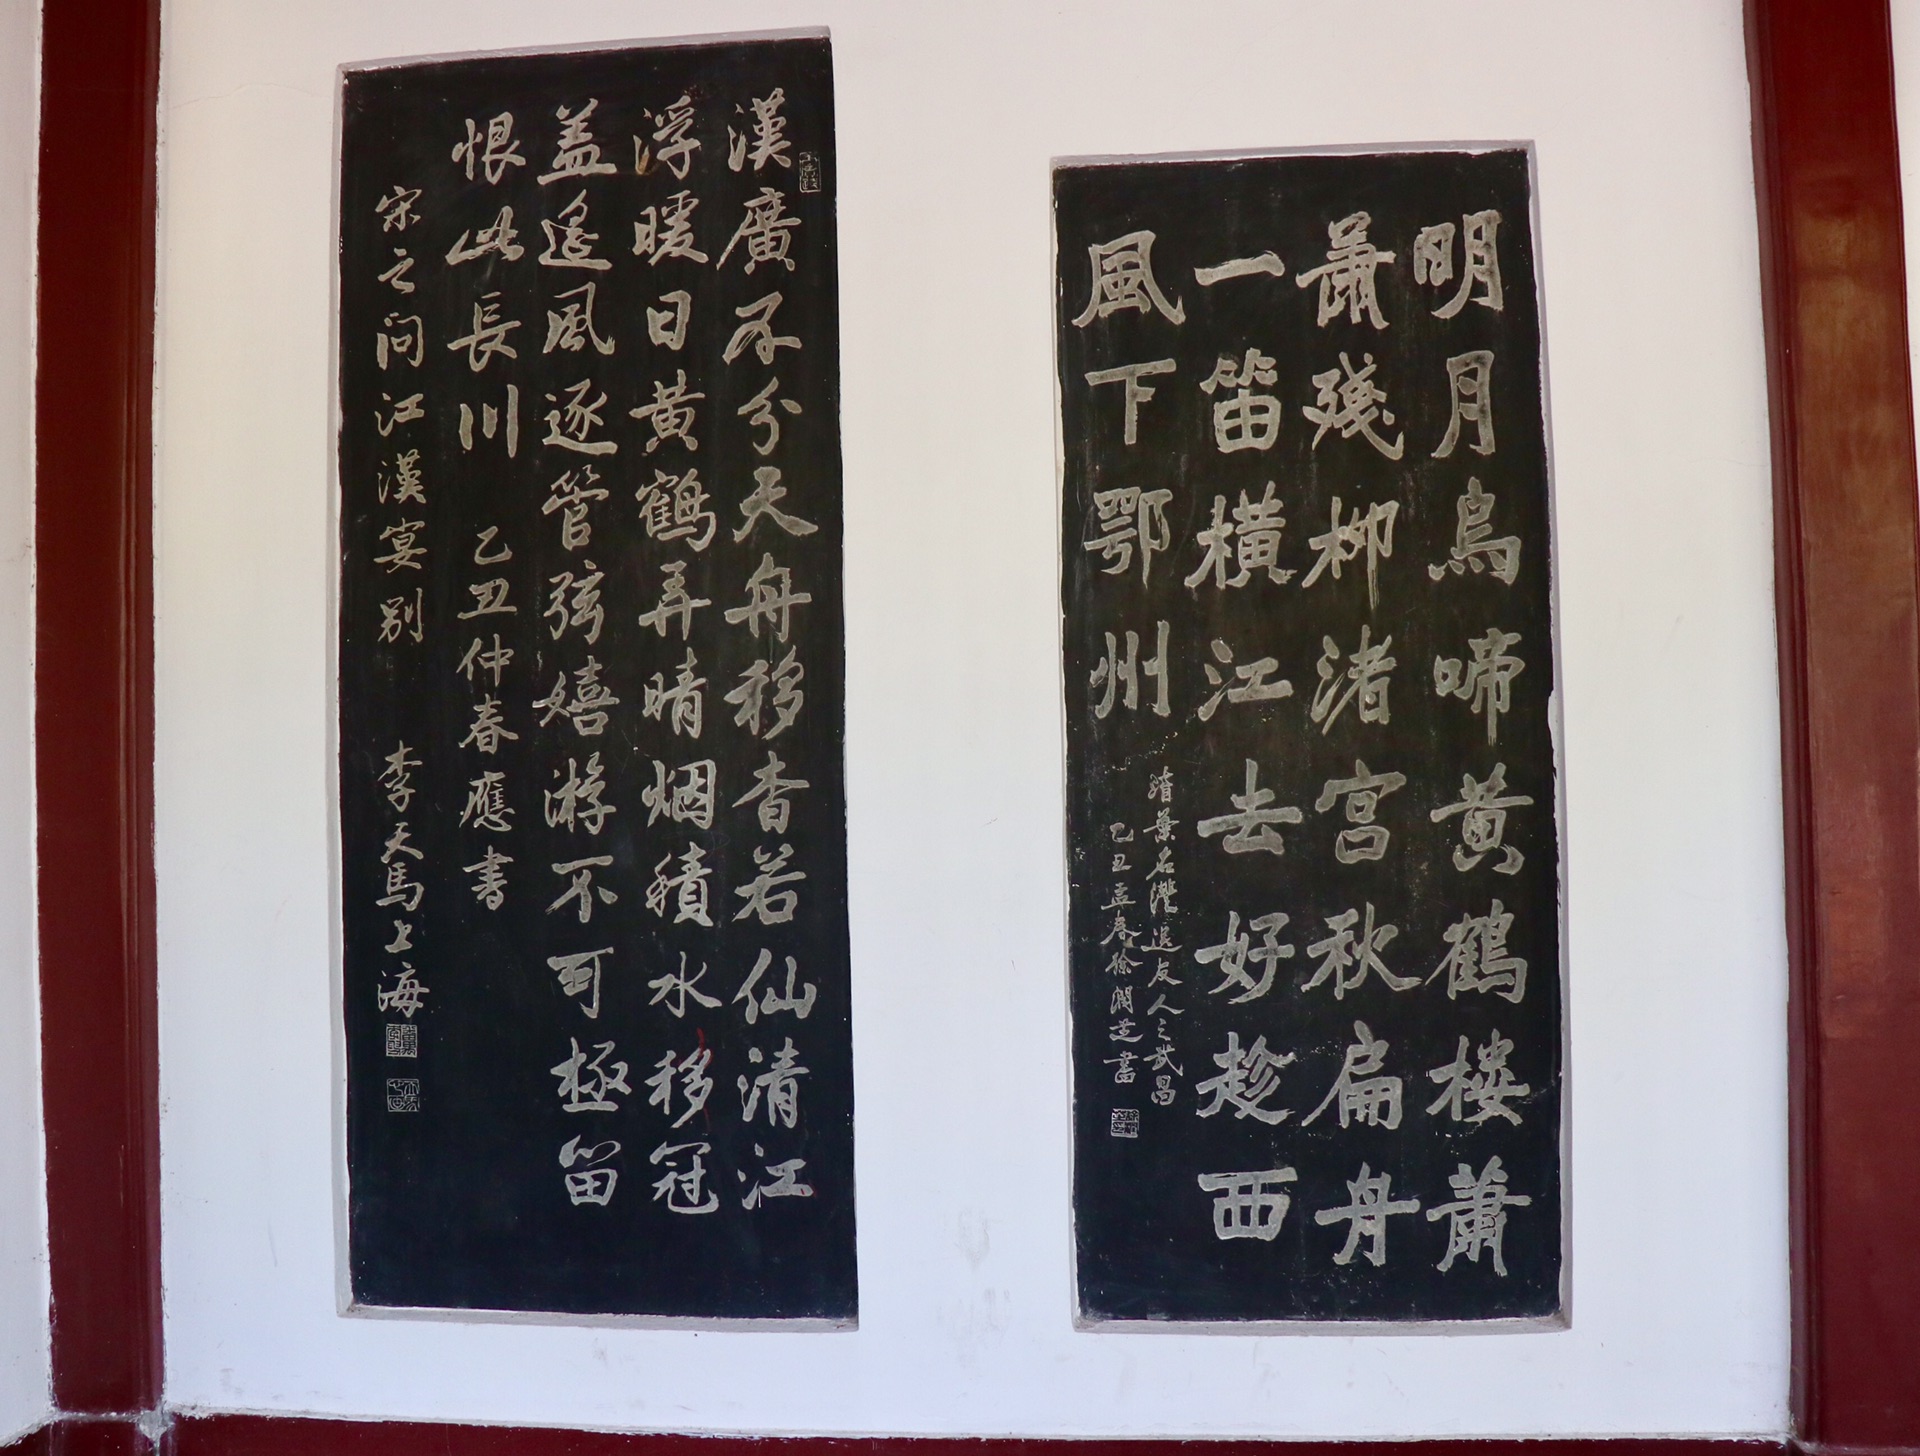 明月烏啼黄鶴楼蕭
蕭殘柳渚宫秋扁舟
一笛橫江去好趁西
風下鄂州
清葉名灃送友人之武昌
乙丑孟春徐潤芝書
漢廣不分天舟移杳若仙清江
浮暖日黄鶴弄晴烟積水移冠
盖遥風逐管弦嬉游不可極留
恨此長川 乙丑仲春應書
宋之問江漢宴别 李天馬上海